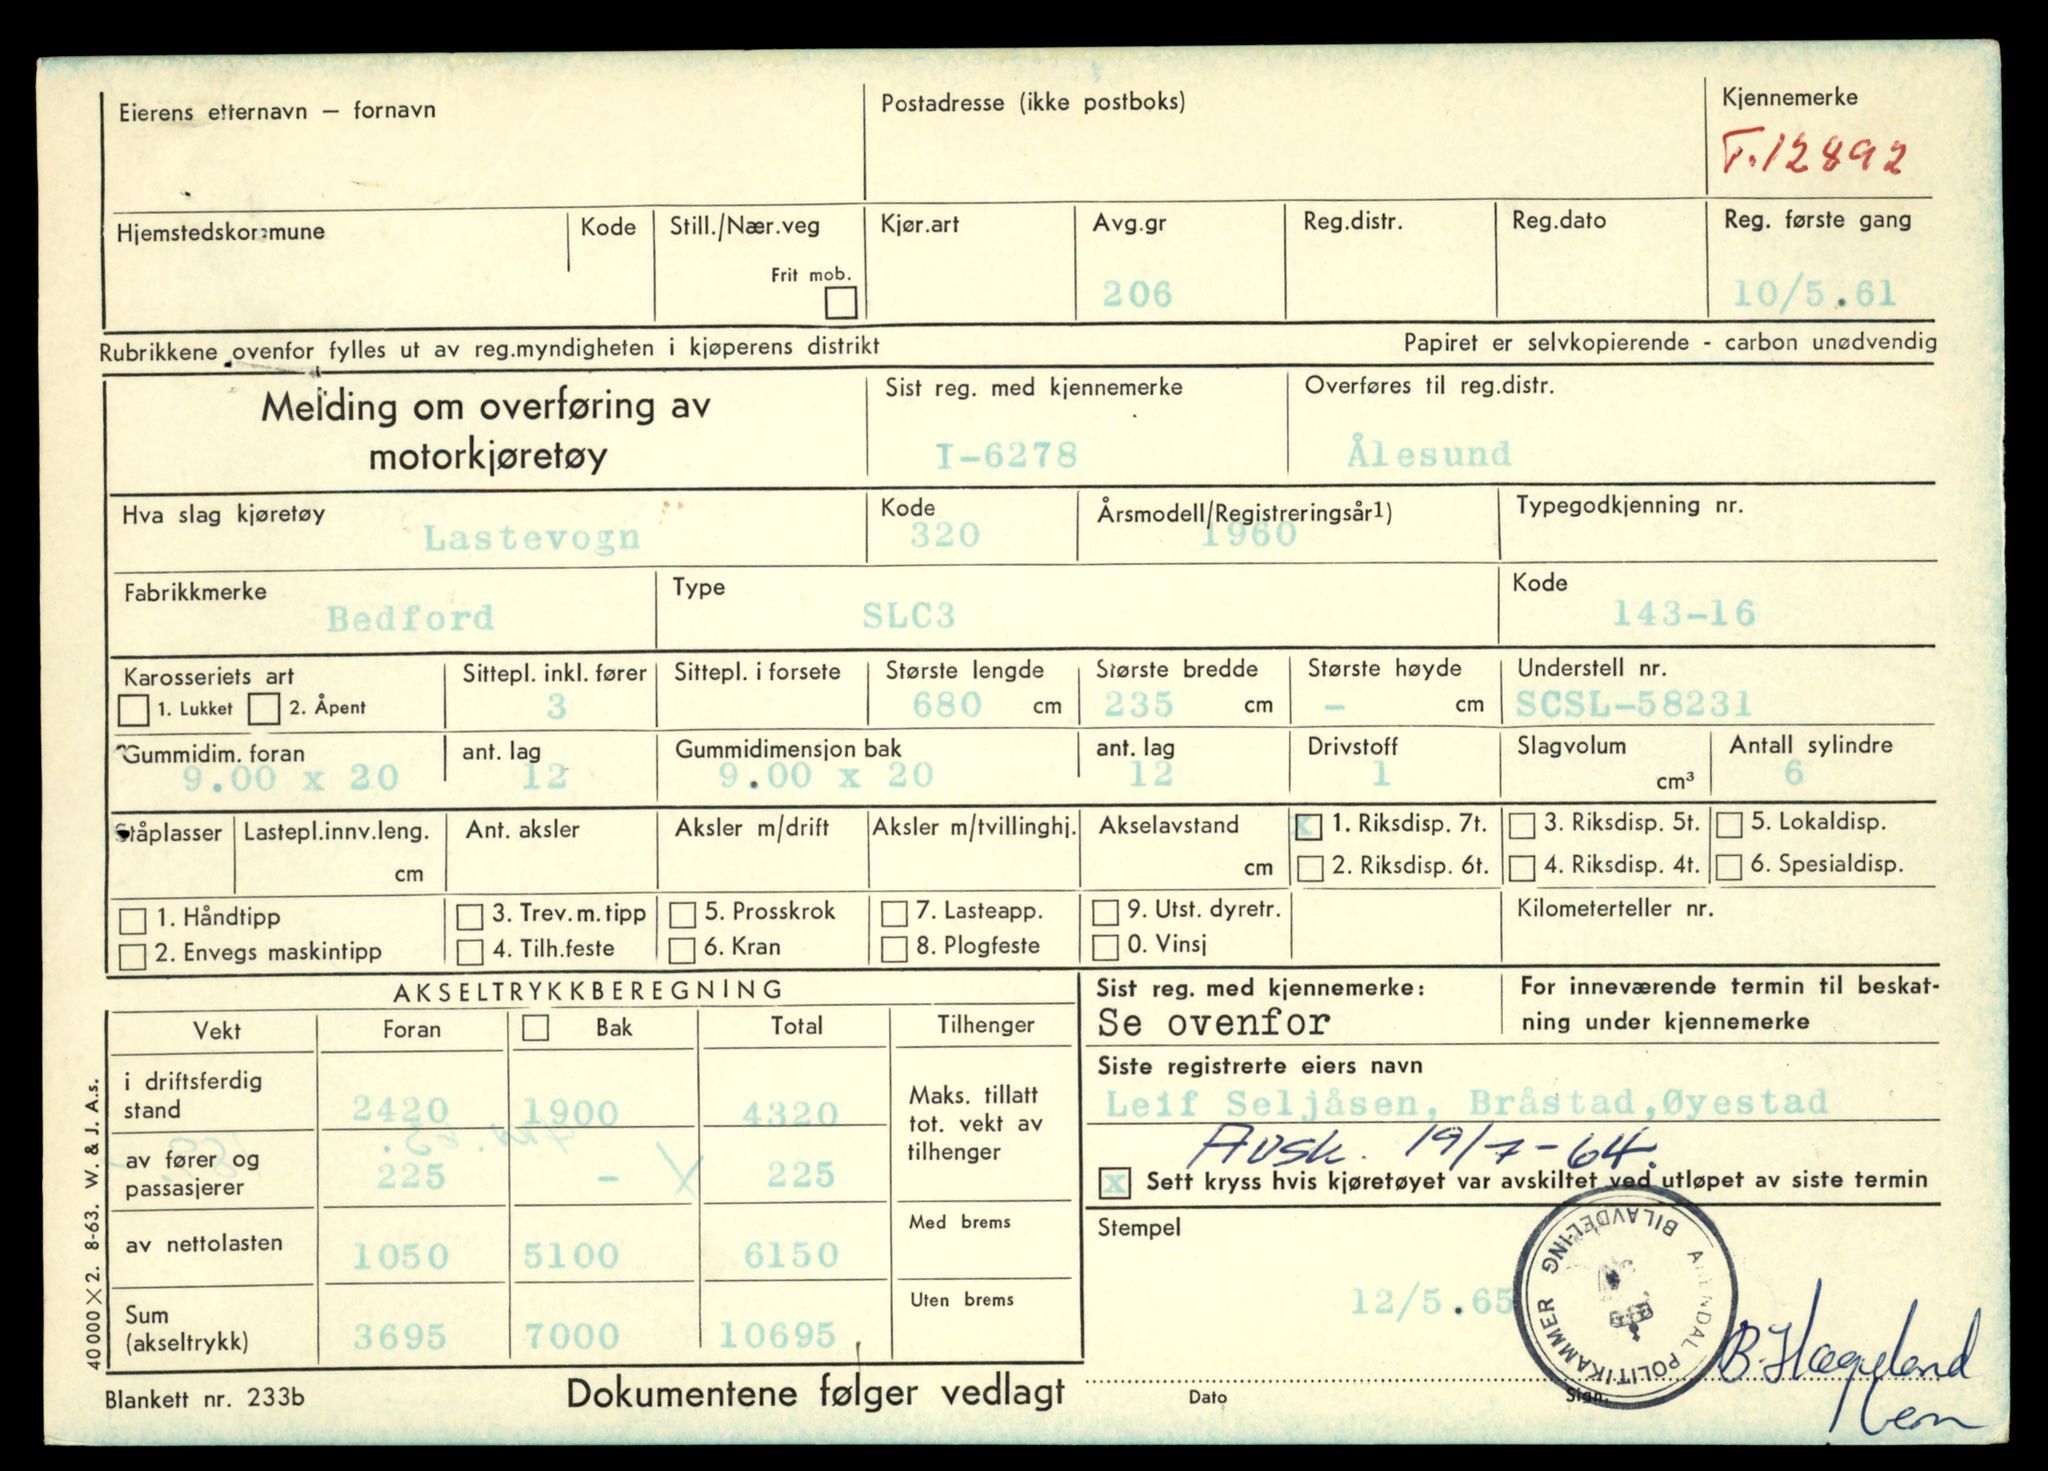 Eierens etternavn — fornavn
Postadresse (ikke postboks)
Kjennemerke
T.12892
Hjemstedskommune
Kode
Still./Nær.veg
Frit mob.
Kjør.art
Avg.gr
206
Reg.distr.
Reg.dato
Reg. første gang
10/5.61
Rubrikkene ovenfor fylles ut av reg.myndigheten i kjøperens distrikt
Papiret er selvkopierende - carbon unødvendig
Melding om overføring av
motorkjøretøy
Sist reg. med kjennemerke
I-6278
Overføres til reg.distr.
Ålesund
Hva slag kjøretøy
Lastevogn
Kode
320
Årsmodell/Registreringsår1)
1960
Typegodkjenning nr.
Fabrikkmerke
Bedford
Type
SLC3
Kode
143-16
Karosseriets art
1. Lukket 2. Åpent
Sittepl. inkl. fører
3
Sittepl. i forsete
Største lengde
680 cm
Største bredde
235 cm
Største høyde
- cm
Understell nr.
SCSL-58231
Gummidim. foran
9.00 x 20
ant. lag
12
Gummidimensjon bak
9.00 x 20
ant. lag
12
Drivstoff
1
Slagvolum
cm³
Antall sylindre
6
Ståplasser
Lastepl.innv.leng.
cm
Ant. aksler
Aksler m/drift
Aksler m/tvillinghj.
Akselavstand
cm
x 1. Riksdisp. 7t.
2. Riksdisp. 6t.
3. Riksdisp. 5t.
4. Riksdisp. 4t.
5. Lokaldisp.
6. Spesialdisp.
1. Håndtipp
2. Envegs maskintipp
3. Trev.m.tipp
4. Tilh.feste
5. Prosskrok
6. Kran
7. Lasteapp.
8. Plogfeste
9. Utst. dyretr.
0. Vinsj
Kilometerteller nr.
AKSELTRYKKBEREGNING
Vekt Foran Bak Total Tilhenger
i driftsferdig
stand
2420 1900 4320
Maks. tillatt
tot. vekt av
tilhenger
av fører og
passasjerer
225 - 225
av nettolasten
1050 5100 6150
Med brems
Sum
(akseltrykk)
3695 7000 10695
Uten brems
Sist reg. med kjennemerke:
Se ovenfor
For inneværende termin til beskat-
ning under kjennemerke
Siste registrerte eiers navn
Leif Seljåsen, Bråstad,Øyestad
Avsk. 19/7-64.
x Sett kryss hvis kjøretøyet var avskiltet ved utløpet av siste termin
Stempel
12/5.65
ARENDAL POLITIKAMMER
BILAVDELING
B. Hægeland
Dato
Sign.
40000 X 2. 8-63. W. & J. A.s.
Blankett nr. 233b
Dokumentene følger vedlagt